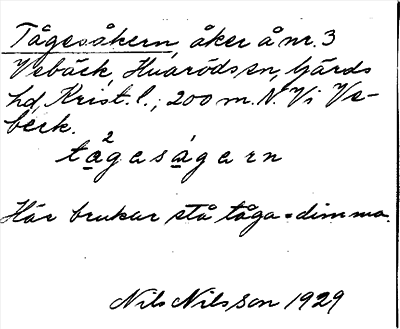 Tågesåkern, åker å nr. 3
Vebäck, Huaröds sn, Gärds
hd, Krist. l.; 200 m. N. Vi Ve-
beck.
ta̲²gasa̲garn
Här brukar stå tåga = dimma.
Nils Nilsson 1929